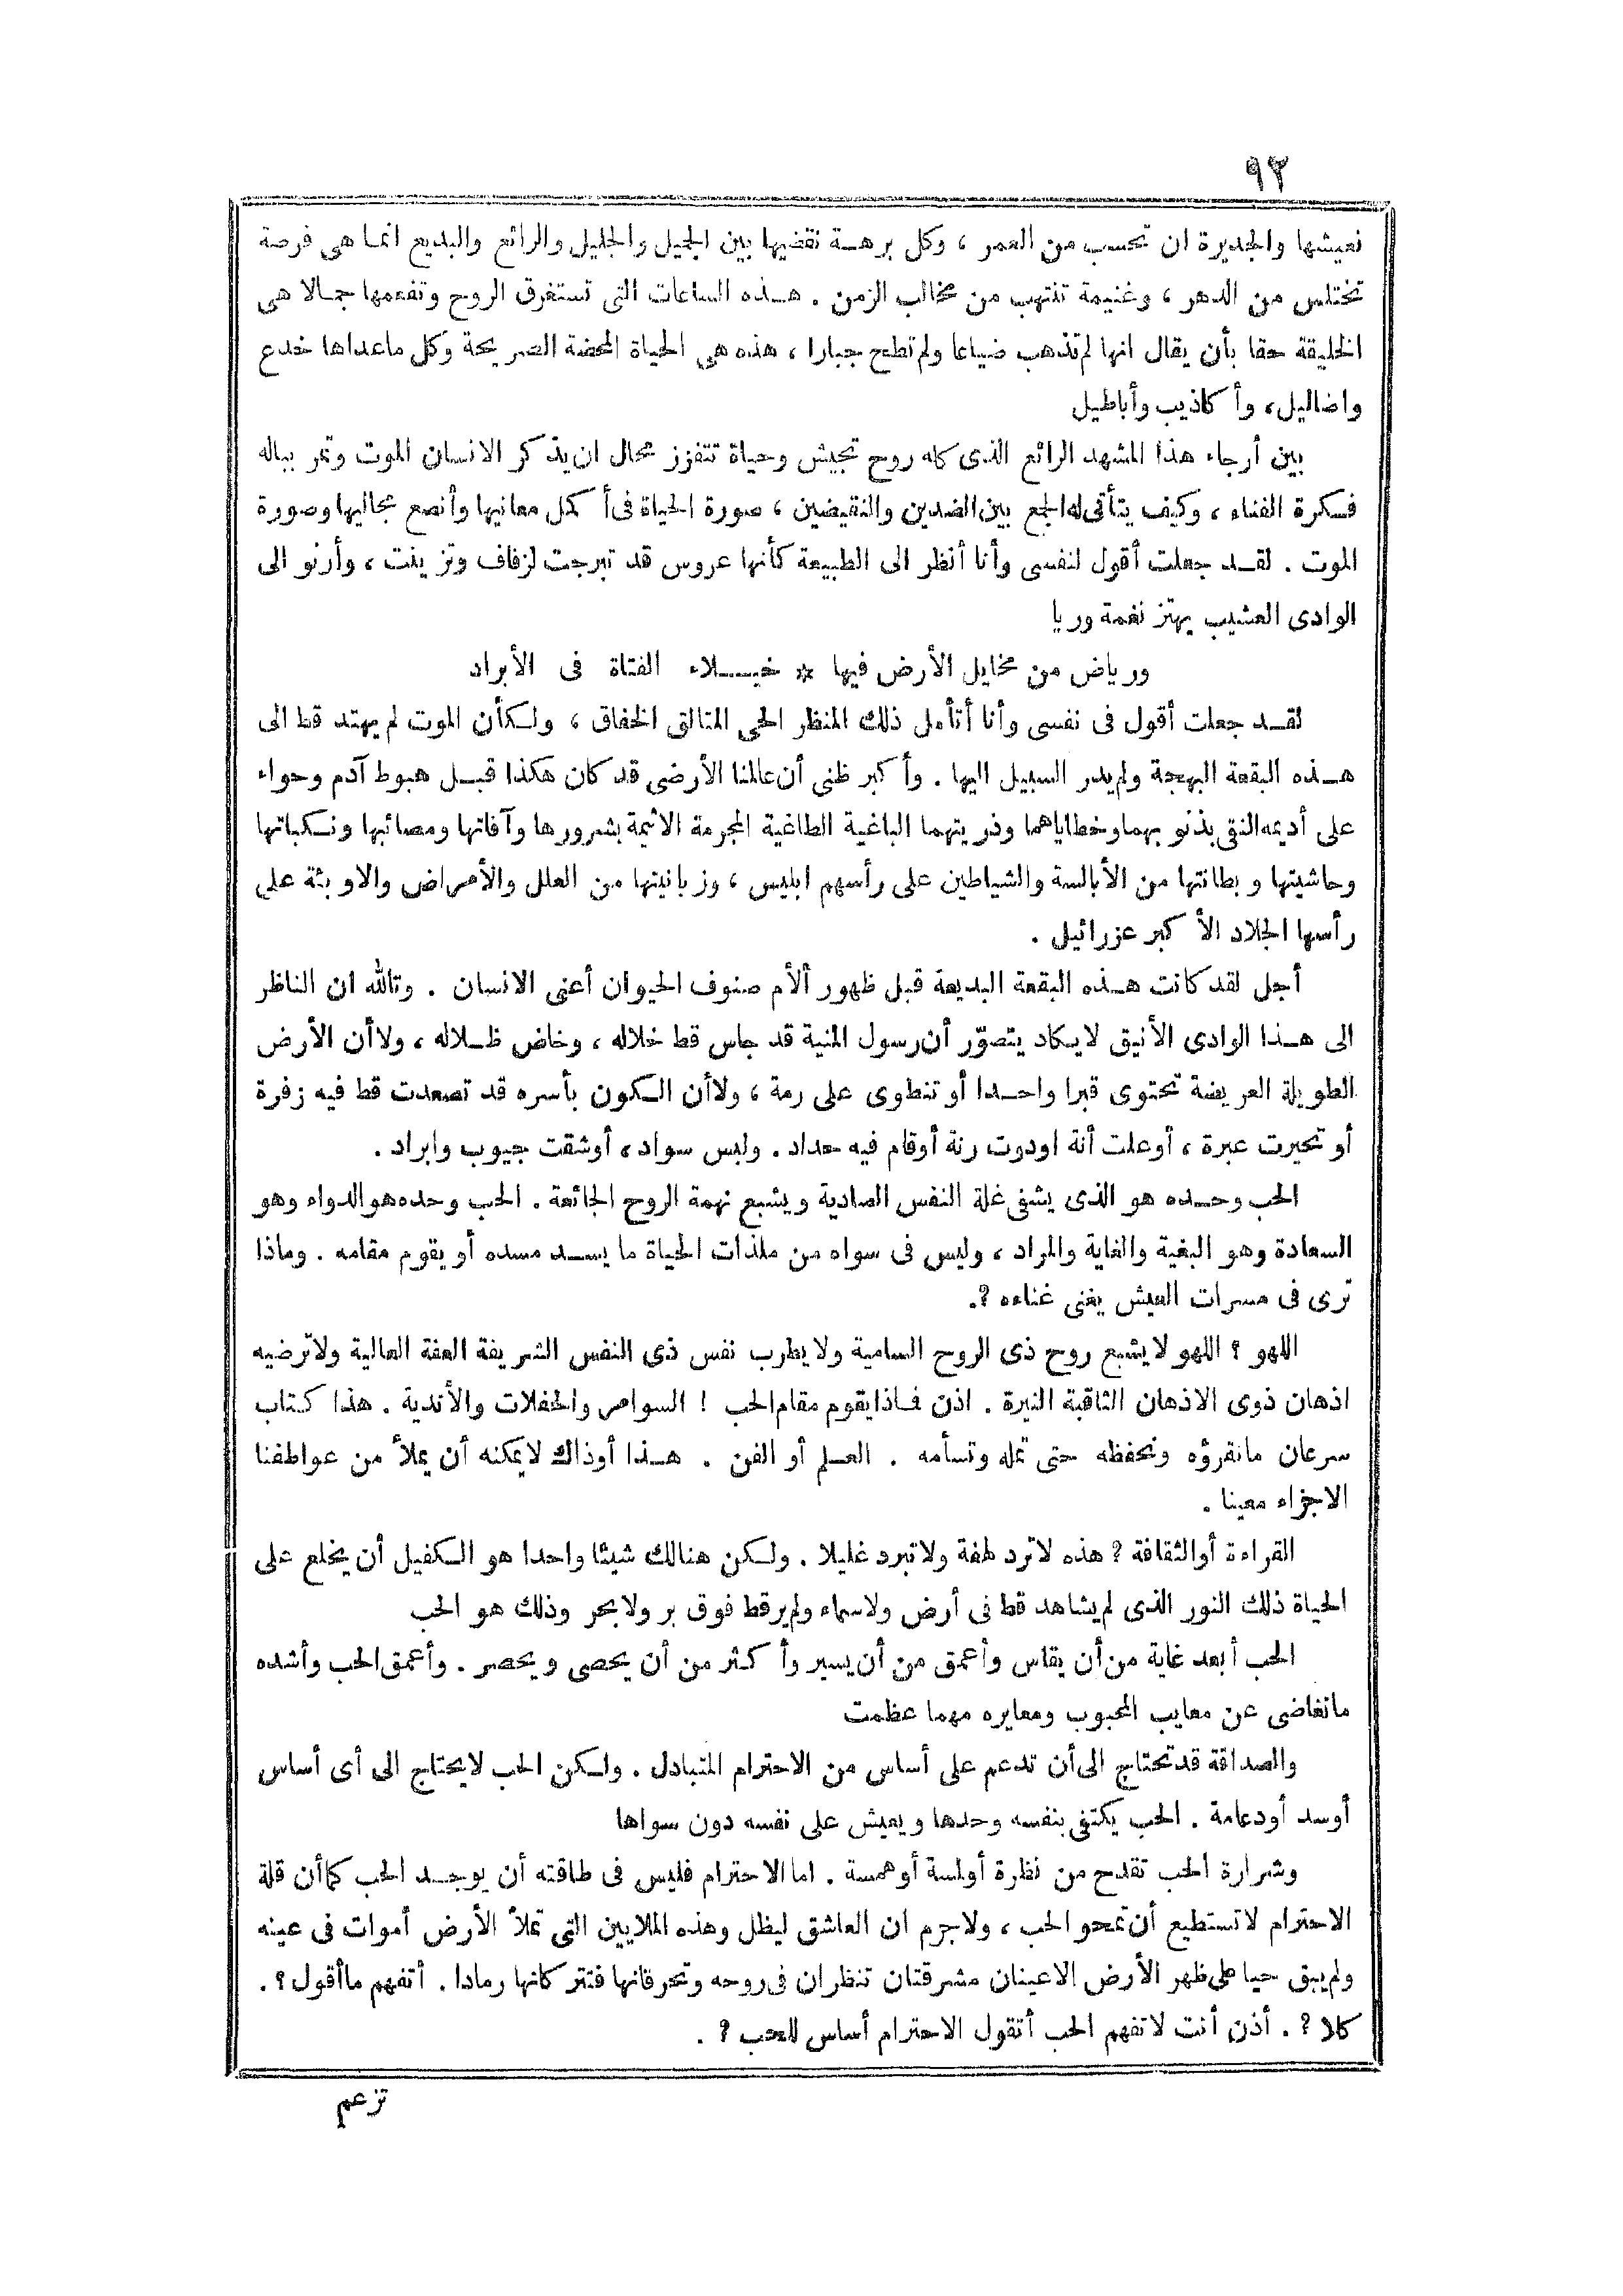 ٩٢
نعيشها والجديرة ان تحسب من العمر ، وكل برهة نقضيها بين الجميل والجليل والرائع والبديع انما هى فرصة
تختلس من الدهر ، وغنيمة تنتهب من مخالب الزمن . هذه الساعات التى تستغرق الروح وتفعمها جمالا هى
الخليقة حقا بأن يقال انها لم تذهب ضياعا ولم تطح جبارا ، هذه هى الحياة المحضة الصريحة وكل ماعداها خدع
واضاليل، وأكاذيب وأباطيل
بين أرجاء هذا المشهد الرائع الذى كله روح تجيش وحياة تتفزز محال ان يذكر الانسان الموت وتمر بباله
فكرة الفناء ، وكيف يتأتى له الجمع بين الضدين والنقيضين ، صورة الحياة فى أكمل معانيها وأنصع مجاليها وصورة
الموت . لقد جعلت أقول لنفسى وأنا أنظر الى الطبيعة كأنها عروس قد تبرجت لزفاف وتزينت ، وأرنو الى
الوادى العشيب يهتز نغمة وريا
ورياض من مخايل الأرض فيها * خيلاء الفتاة فى الأبراد
لقد جعلت أقول فى نفسى وأنا أتأمل ذلك المنظر الحى المتالق الخفاق ، ولكأن الموت لم يهتد قط الى
هذه البقعة البهجة ولم يدر السبيل اليها . وأكبر ظنى أن عالمنا الأرضى قد كان هكذا قبل هبوط آدم وحواء
على أديمه النقى بذنوبهما وخطاياهما وذريتهما الباغية الطاغية المجرمة الاثيمة بشرورها وآفاتها ومصائبها ونكباتها
وحاشيتها وبطانتها من الأبالسة والشياطين على رأسهم ابليس ، وزبانيتها من العلل والأمراض والاوبئة على
رأسها الجلاد الأكبر عزرائيل .
أجل لقد كانت هذه البقعة البديعة قبل ظهور ألأم صنوف الحيوان أعنى الانسان . وتالله ان الناظر
الى هذا الوادى الأنيق لايكاد يتصوّر أن رسول المنية قد جاس قط خلاله ، وخاض ظلاله ، ولا أن الأرض
الطويلة العريضة تحتوى قبرا واحدا أو تنطوى على رمة ، ولا أن الكون بأسره قد تصعدت قط فيه زفرة
أو تحيرت عبرة ، أوعلت أنة اودوت رنة أوقام فيه حداد . ولبس سواد ، أوشقت جيوب وابراد .
الحب وحده هو الذى يشفى غلة النفس الصادية ويشبع نهمة الروح الجائعة . الحب وحده هو الدواء وهو
السعادة وهو البغية والغاية والمراد ، وليس فى سواه من ملذات الحياة ما يسد مسده أو يقوم مقامه . وماذا
ترى فى مسرات العيش يغنى غناءه ؟.
اللهو ؟ اللهو لايشبع روح ذى الروح السامية ولا يطرب نفس ذى النفس الشريفة العفة العالية ولاترضيه
اذهان ذوى الاذهان الثاقبة النيرة . اذن فماذا يقوم مقام الحب ! السوامر والحفلات والأندية . هذا كتاب
سرعان مانقرؤه ونحفظه حتى نمله ونسأمه . العلم أو الفن . هذا أوذاك لايمكنه أن يملأ من عواطفنا
الاجزاء معينا .
القراءة أوالثقافة ؟ هذه لاترد لهفة ولاتبرد غليلا . ولكن هنالك شيئا واحدا هو الكفيل أن يخلع على
الحياة ذلك النور الذى لم يشاهد قط فى أرض ولاسماء ولم ير قط فوق بر ولابحر وذلك هو الحب
الحب أبعد غاية من أن يقاس وأعمق من أن يسبر وأكثر من أن يحصى ويحصر . وأعمق الحب وأشده
ماتغاضى عن معايب المحبوب ومعايره مهما عظمت
والصداقة قد تحتاج الى أن تدعم على أساس من الاحترام المتبادل . ولكن الحب لايحتاج الى أى أساس
أوسد أودعامة . الحب يكتفى بنفسه وحدها ويعيش على نفسه دون سواها
وشرارة الحب تقدح من نظرة أولمسة أوهمسة . اما الاحترام فليس فى طاقته أن يوجد الحب كما أن قلة
الاحترام لاتستطيع أن تمحو الحب ، ولاجرم ان العاشق ليظل وهذه الملايين التى تملأ الأرض أموات فى عينه
ولم يبق حيا على ظهر الأرض الاعينان مشرقتان تنظران فى روحه وتحرقانها فتتركانها رمادا . أتفهم ماأقول ؟ .
كلا ؟ . أذن أنت لاتفهم الحب أتقول الاحترام أساس للحب ؟ .
تزعم